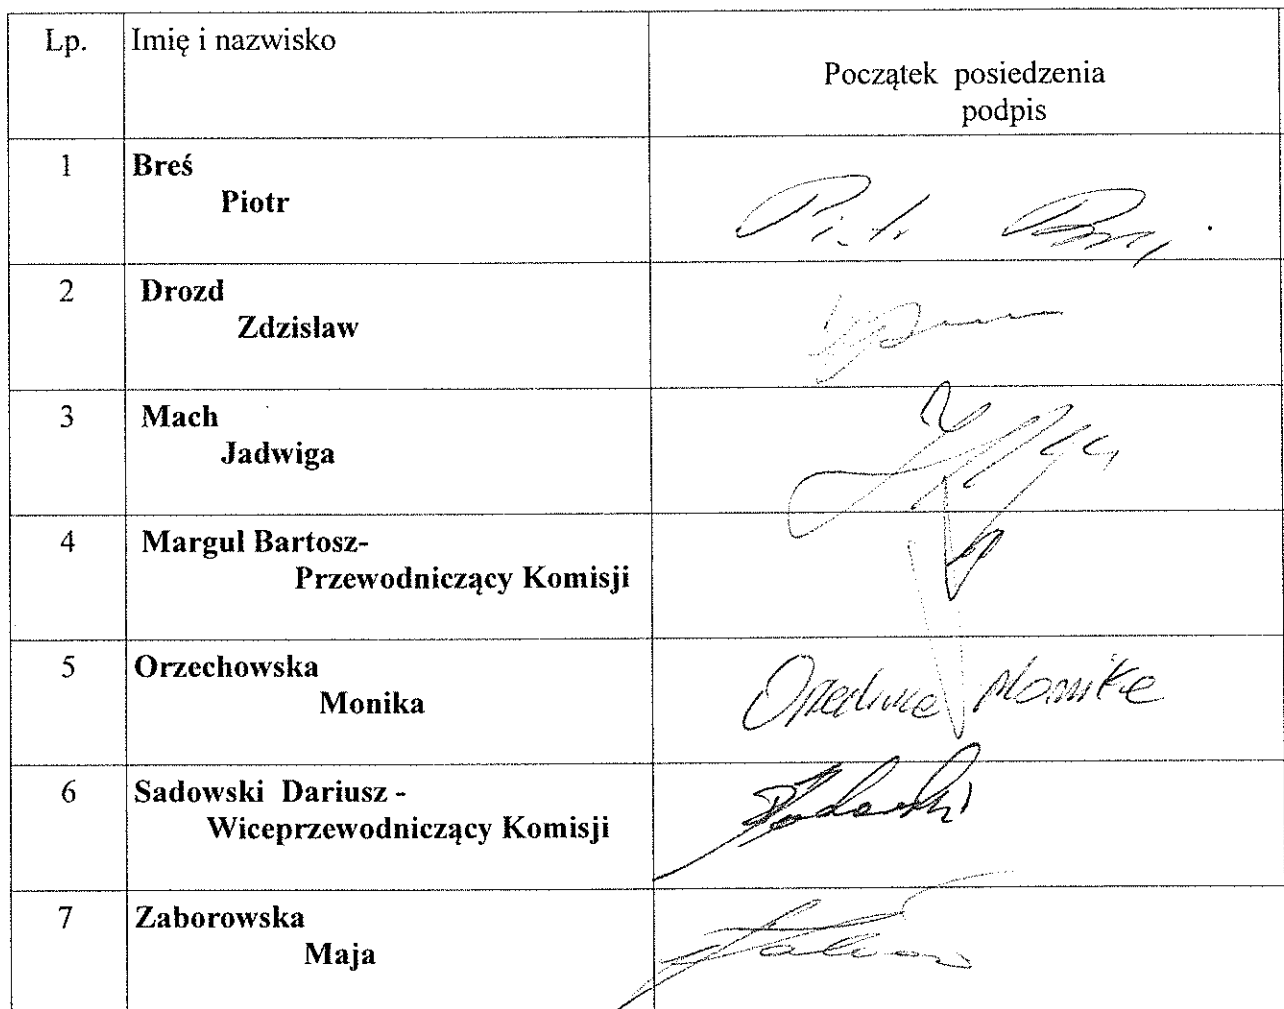 Lp. Imię i nazwisko
Początek posiedzenia
podpis
1 Breś
Piotr
Piotr
2 Drozd
Zdzisław
3 Mach
Jadwiga
4 Margul Bartosz-
Przewodniczący Komisji
5 Orzechowska
Monika
Monika
6 Sadowski Dariusz -
Wiceprzewodniczący Komisji
Sadowski
7 Zaborowska
Maja